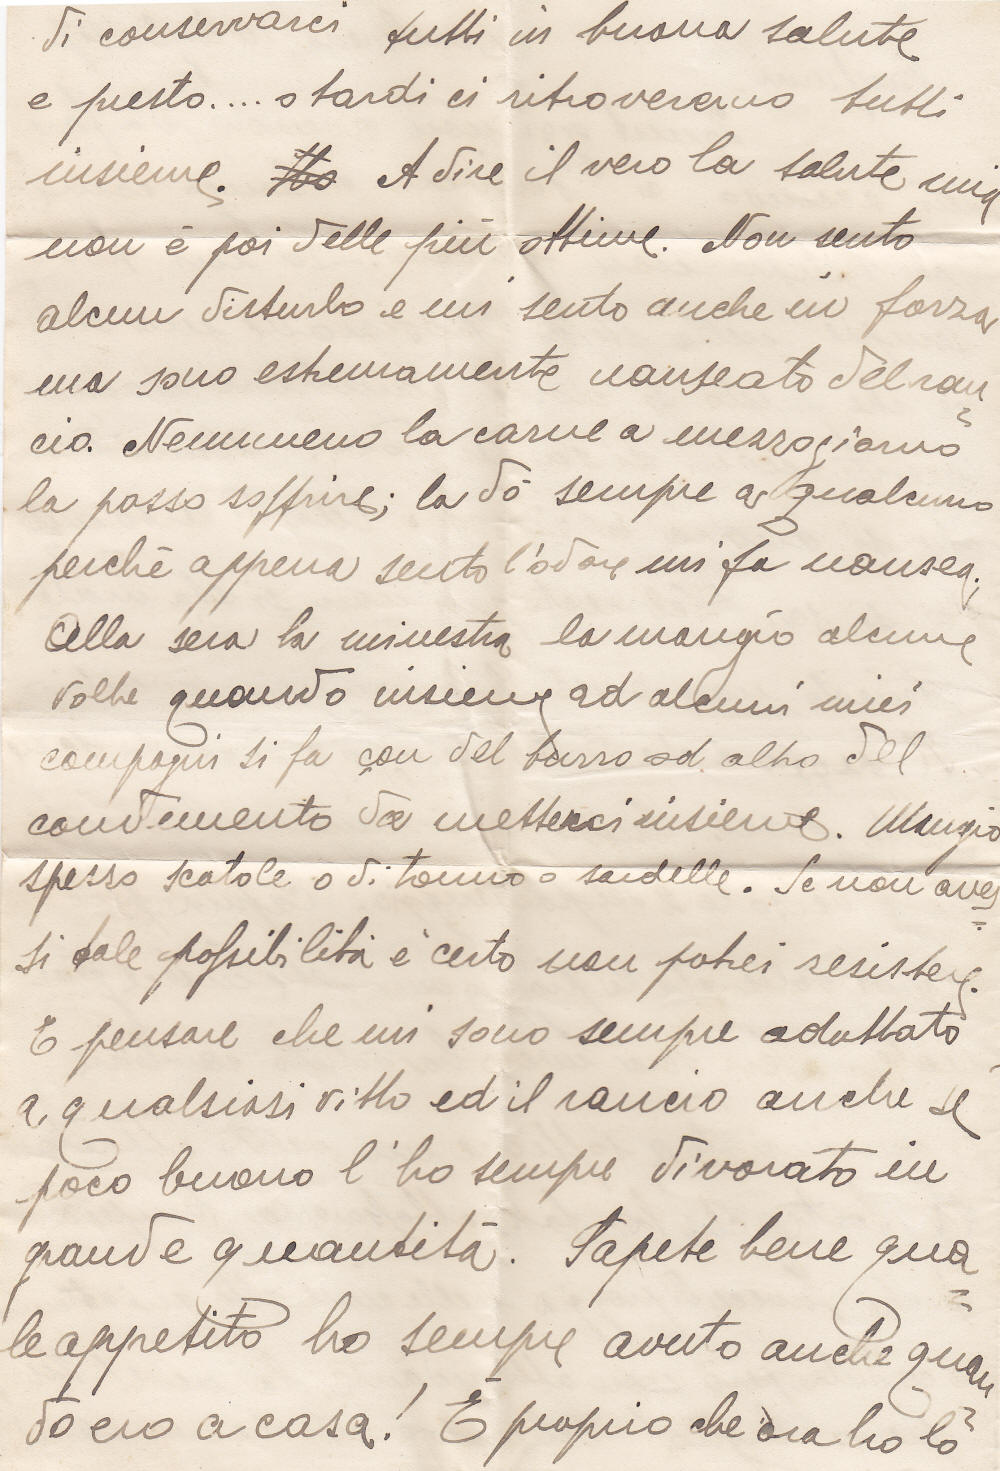 di conservarci tutti in buona salute
e presto.... o tardi ci ritroveremo tutti
insieme. A dire il vero la salute mia
non è poi delle più ottime. Non sento
alcun disturbo e mi sento anche in forza
ma sono estremamente nauseato del ran=
cio. Nemmeno la carne a mezzogiorno
la posso soffrire; la dò sempre a qualcuno
perchè appena sento l'odore mi fa nausea.
Alla sera la minestra la mangio alcune
volte quando insieme ad alcuni miei
compagni si fa con del burro od altro del
condimento da metterci insieme. Mangio
spesso scatole o di tonno o sardelle. Se non aves=
si tale possibilità è certo non potrei resistere.
E pensare che mi sono sempre adattato
a qualsiasi vitto ed il rancio anche se
poco buono l'ho sempre divorato in
grande quantità. Sapete bene qua=
le appetito ho sempre avuto anche quan=
do ero a casa! È proprio che ora ho lo